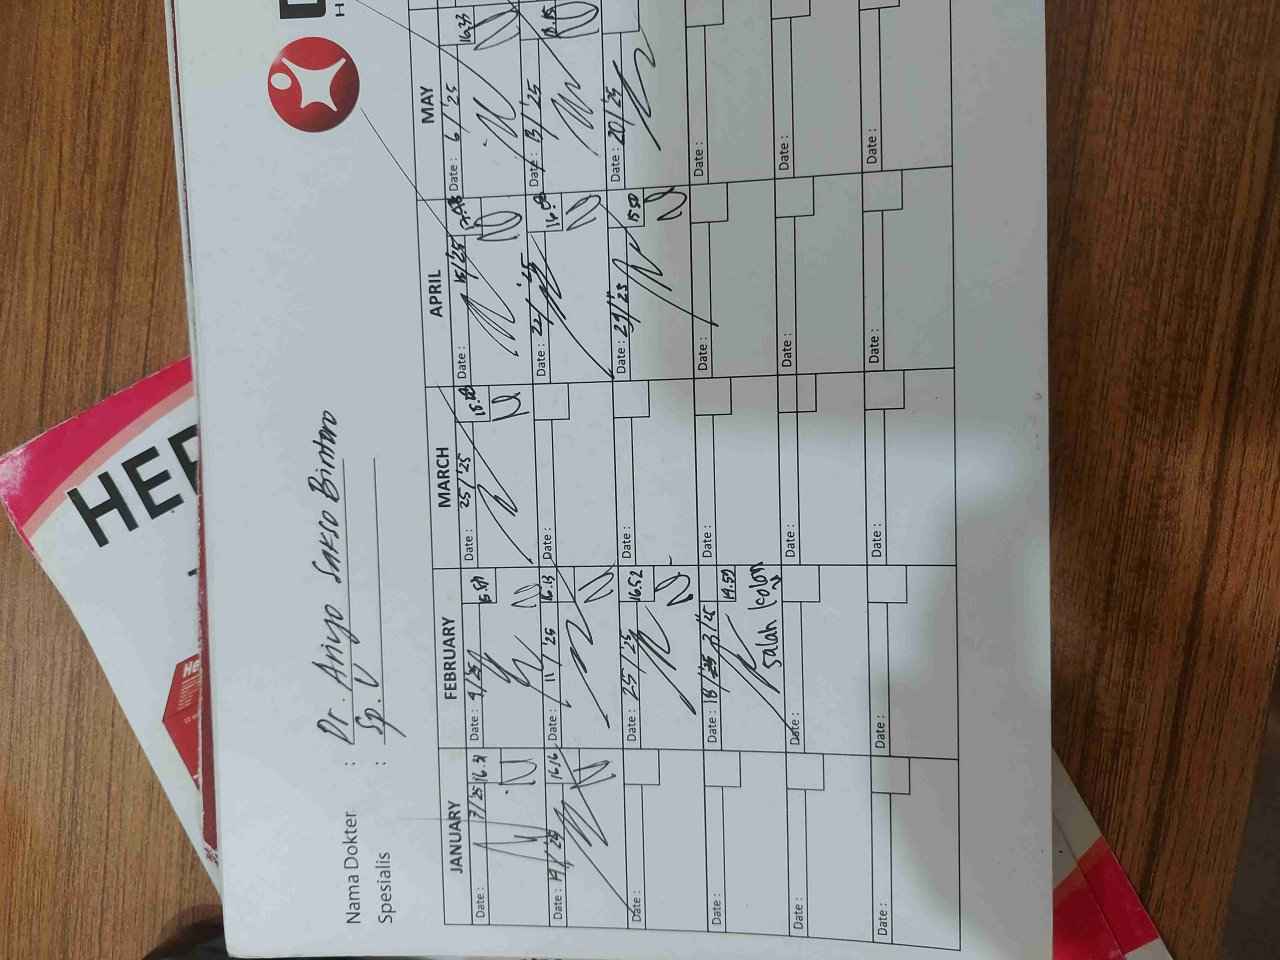 HER
Nama Dokter : Dr. Ariyo Sakso Bintoro
Spesialis : Sp. U
JANUARY FEBRUARY MARCH APRIL MAY
Date : 7/25 16.31 Date : 4/25 Date : 25/'25 Date : 15/25 Date : 6/'25 16.33
Date : 16.16 Date : 11/'25 16.13 Date : Date : 22/'25 16.08 Date : 13/'25
Date : Date : 25/'25 16.52 Date : Date : 29/'25 15.50 Date : 20/25
Date : Date : 18/25 19.59 Date : Date : Date :
salah kolom
Date : Date : Date : Date : Date :
Date : Date : Date : Date : Date :